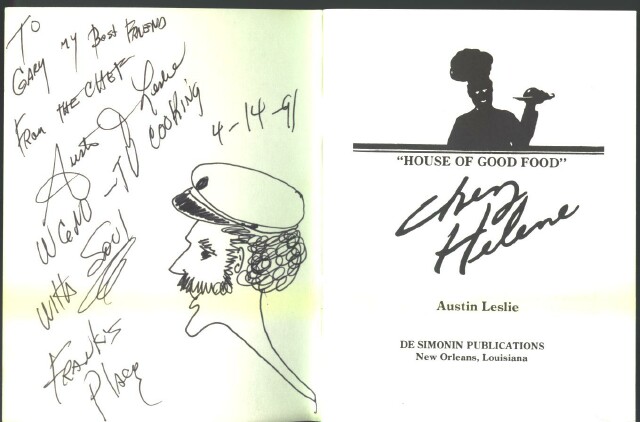 TO
GARY MY BEST FRIEND
FROM THE CHEF
Austin Leslie
COOKING
WITH SOUL
FRANK'S
Place
4-14-91
"HOUSE OF GOOD FOOD"
Chez
Helene
Austin Leslie
DE SIMONIN PUBLICATIONS
New Orleans, Louisiana